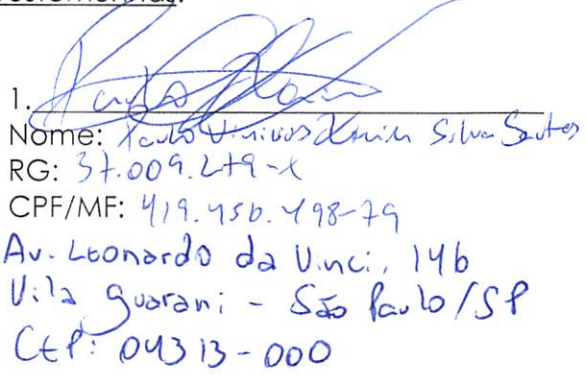 1.
Nome: Paulo Vinicius Silva Santos
RG: 37.009.279-X
CPF/MF: 419.456.498-79
Av. Leonardo da Vinci, 146
Vila Guarani - São Paulo/SP
CEP: 04313-000